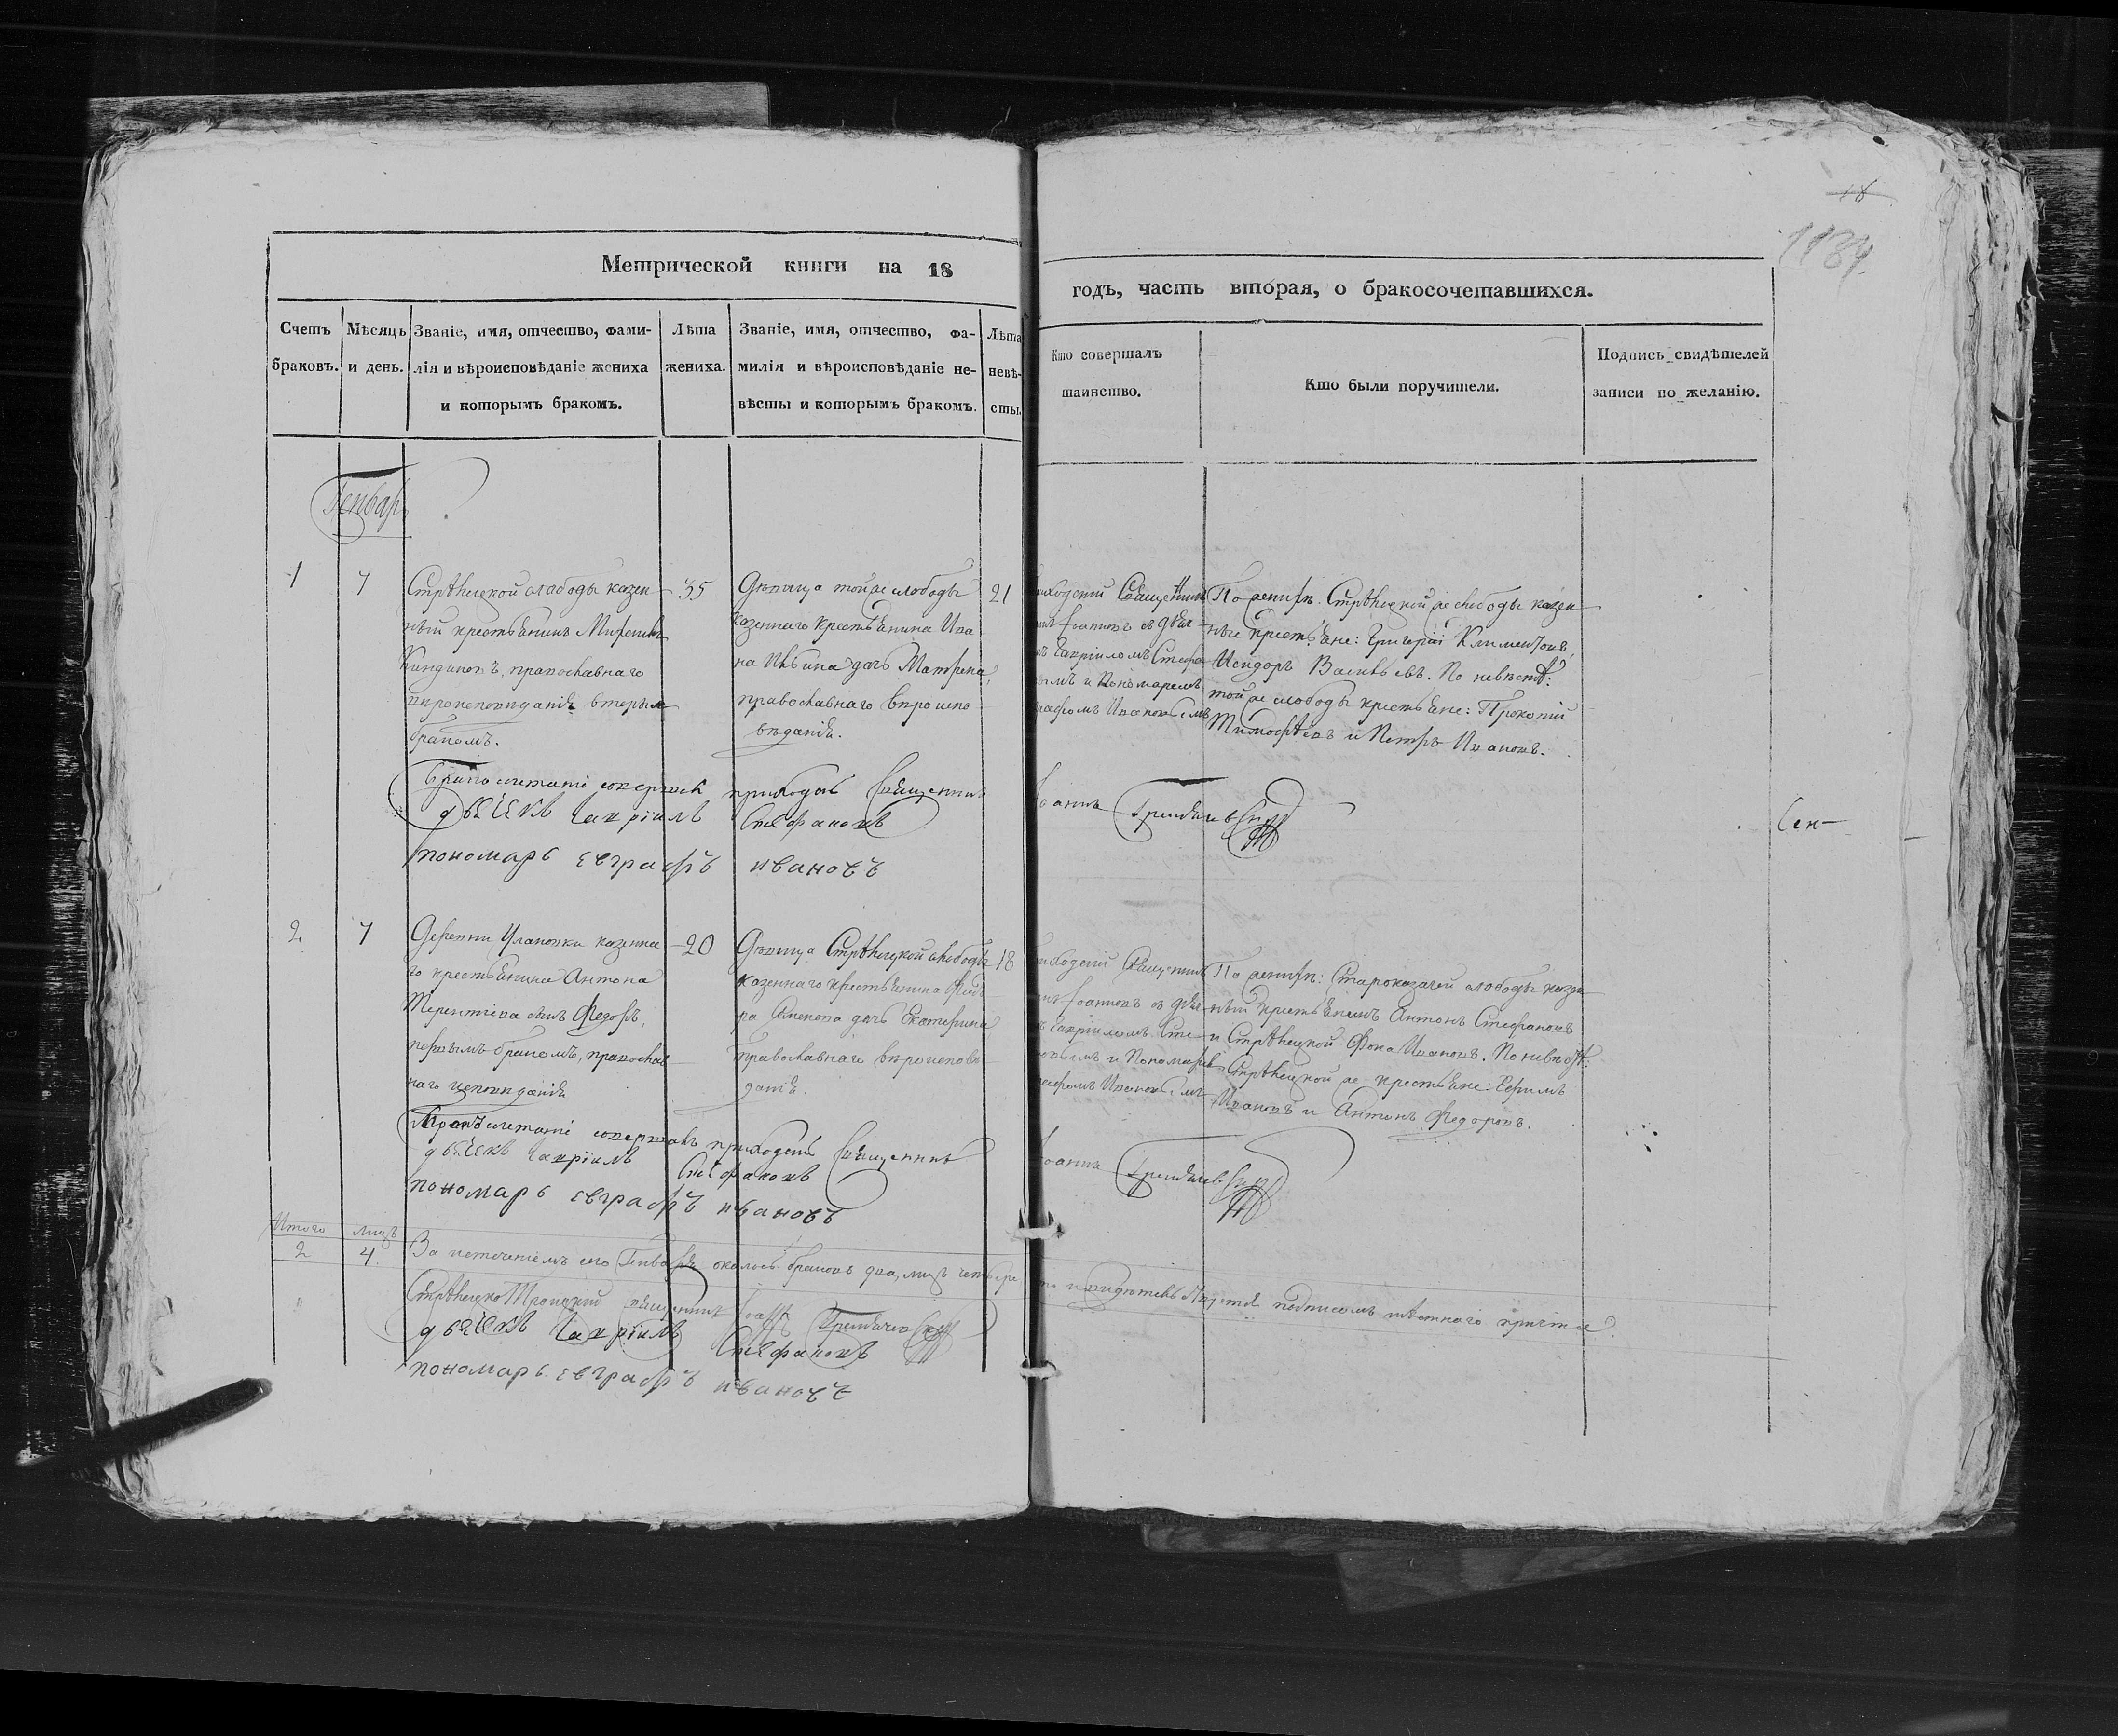 18
1134
Метрической книги на 18
годъ, часть вторая, о бракосочетавшихся.
Счетъ
браковъ.
Мѣсяцъ
и день.
Званіе, имя, отчество, фами-
лія и вѣроисповѣданіе жениха
и которымъ бракомъ.
Лѣта
жениха.
Званіе, имя, отчество, фа-
милія и вѣроисповѣданіе не-
вѣсты и которымъ бракомъ.
Лѣта
невѣ-
сты.
Кто совершалъ
таинство.
Кто были поручители.
Подпись свидѣтелей
записи по желанію.
Генварь
1
7
Стрѣлецкой слободы казен
ный крестьянинъ
православнаго
вѣроисповѣданія вторым
бракомъ.
35
Дѣвица той же слободы
казеннаго крестьянина Ива
на дочь Матрена,
православнаго вѣроиспо
вѣданія.
21
иходскій Священникъ
Іоанномъ съ дьяч
Гавріиломъ Стефа
ымъ и Пономаремъ
рафомъ Ивановымъ
По женихѣ: Стрѣлецкой же слободы казен
ные крестьяне: Григорій Климентовъ,
Исидоръ Васильевъ. По невѣстѣ:
той же слободы крестьяне: Прокопій
Тимофѣевъ и Петръ Ивановъ.
Бракосочетаніе совершалъ приходскій Священникъ
Іоаннъ
дьячекъ Гавріилъ Стефановъ
пономарь евграфъ ивановъ
Сен-
2
7
Деревни Улановки казенна
го крестьянина Антона
Терентіева сынъ Федоръ,
первымъ бракомъ, православ
наго исповѣданія
20
Дѣвица Стрѣлецкой слободы
казеннаго крестьянина Федо
ра Семенова дочь Екатерина
православнаго вѣроисповѣ
данія.
18
иходскій Священникъ
Іоаннъ съ дьяч
Гавріиломъ Сте
овымъ и Пономаремъ
рафомъ Ивановымъ
По женихѣ: Староказачей слободы казен
ный крестьянинъ Антонъ Стефановъ
и Стрѣлецкой Фока Ивановъ. По невѣстѣ:
Стрѣлецкой же крестьяне: Ефимъ
Ивановъ и Антонъ Федоровъ.
сочетаніе совершалъ приходскій Священникъ
Іоаннъ
дьячекъ Гавріилъ Стефановъ
пономарь евграфъ ивановъ
Итого лицъ
2 4
За истеченіемъ сего Генваря оказалось браковъ два, лицъ четыре
подписомъ мѣстнаго причта.
Стрѣлецко Троицкій священникъ Іоаннъ
дьячекъ Гавріилъ Стефановъ
пономарь евграфъ ивановъ